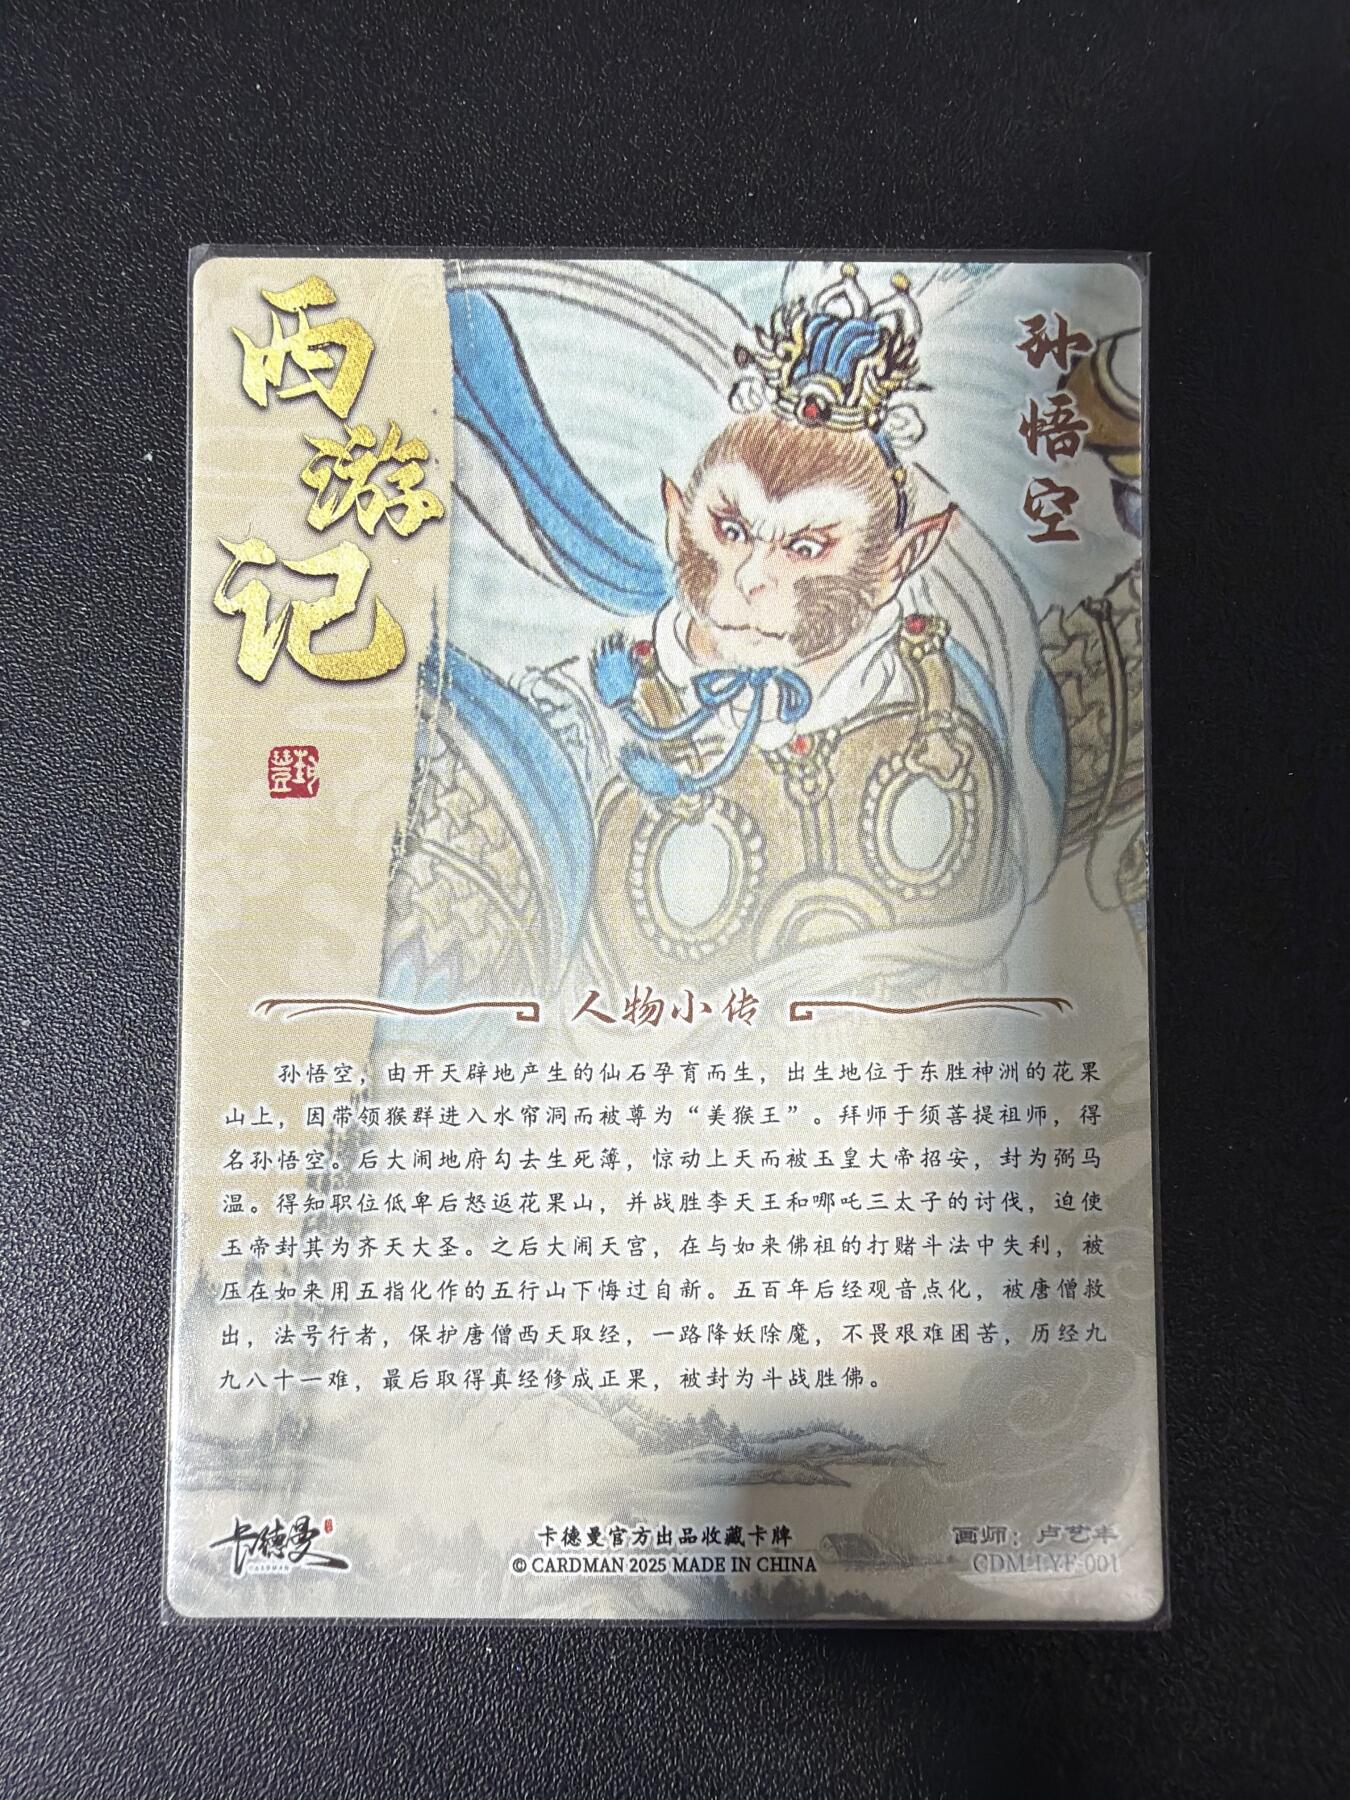 西游记
孙悟空
人物小传
孙悟空，由开天辟地产生的仙石孕育而生，出生地位于东胜神洲的花果
山上，因带领猴群进入水帘洞而被尊为“美猴王”。拜师于须菩提祖师，得
名孙悟空。后大闹地府勾去生死簿，惊动上天而被玉皇大帝招安，封为弼马
温。得知职位低卑后怒返花果山，并战胜李天王和哪吒三太子的讨伐，迫使
玉帝封其为齐天大圣。之后大闹天宫，在与如来佛祖的打赌斗法中失利，被
压在如来用五指化作的五行山下悔过自新。五百年后经观音点化，被唐僧救
出，法号行者，保护唐僧西天取经，一路降妖除魔，不畏艰难困苦，历经九
九八十一难，最后取得真经修成正果，被封为斗战胜佛。
卡德曼
CARDMAN
卡德曼官方出品收藏卡牌
© CARDMAN 2025 MADE IN CHINA
画师：卢艺丰
CDM-LYF-001